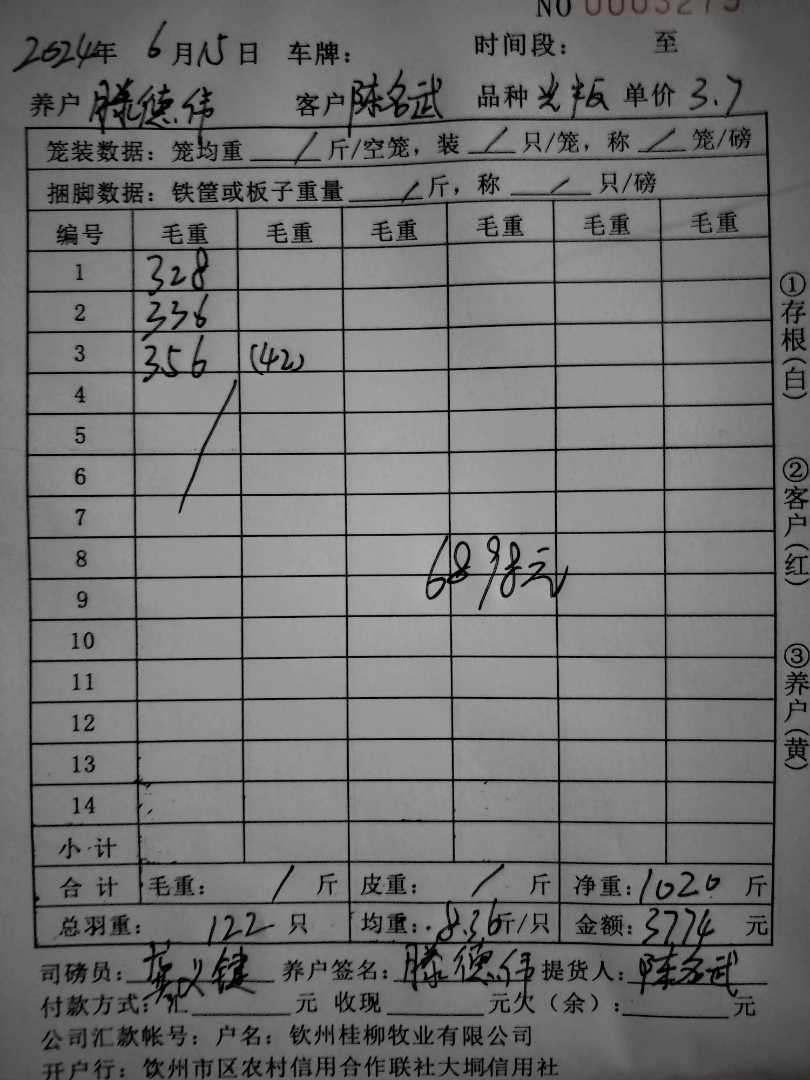 NO 0003279
2024年 6月15日 车牌： 时间段： 至
养户 滕德伟 客户 陈名武 品种 光板 单价 3.7
笼装数据：笼均重 / 斤/空笼，装 / 只/笼，称 / 笼/磅
捆脚数据：铁筐或板子重量 / 斤，称 / 只/磅
编号 毛重 毛重 毛重 毛重 毛重 毛重
1 328
2 336
3 356 (42)
4
5
6
7
8
6898元
9
10
11
12
13
14
小计
合计 毛重： / 斤 皮重： / 斤 净重：1020 斤
总羽重： 122 只 均重：8.36斤/只 金额：3774 元
司磅员： 义键 养户签名：滕德伟 提货人：陈名武
付款方式：汇 元 收现 元欠（余）： 元
公司汇款帐号：户名：钦州桂柳牧业有限公司
开户行：饮州市区农村信用合作联社大垌信用社
①存根（白）
②客户（红）
③养户（黄）